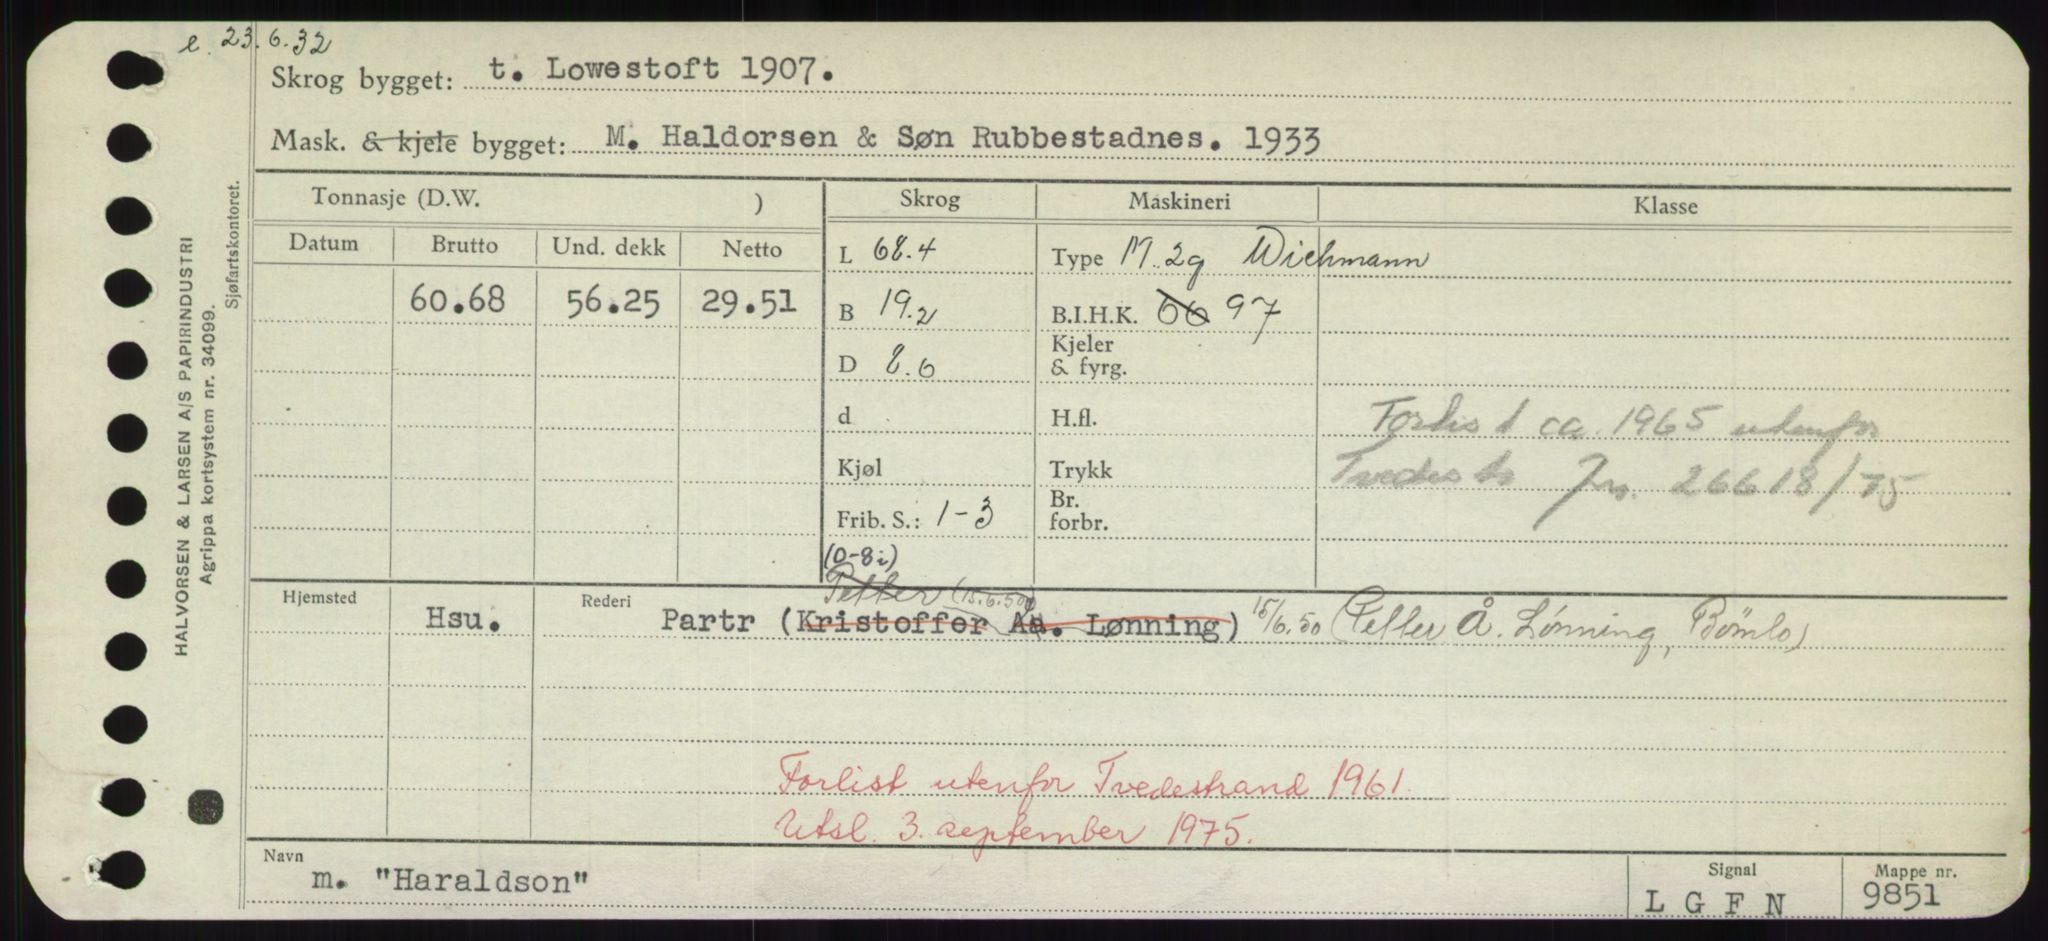 e. 23.6.32
Skrog bygget: t. Lowestoft 1907.
Mask. & kjele bygget: M. Haldorsen & Søn Rubbestadnes. 1933
Tonnasje (D.W. ) Skrog Maskineri Klasse
Datum Brutto Und. dekk Netto L 68.4 Type M. 2g Wichmann
60.68 56.25 29.51 B 19.2 B.I.H.K. 66 97
Kjeler
D 8.6 & fyrg.
d H.fl. Forlist ca. 1965 utenfor
Kjøl Trykk Tvedestr Jnr. 26618/75
Br.
Frib. S.: 1-3 forbr.
(0-8i)
Petter (15.6.50)
Hjemsted Hsu. Rederi Partr (Kristoffer Aa. Lønning) 15/6.50 (Petter Å. Lønning, Bömlo)
Forlist utenfor Tvedestrand 1961.
Utsl. 3. september 1975.
Navn m. "Haraldson" Signal L G F N Mappe nr. 9851
HALVORSEN & LARSEN A/S PAPIRINDUSTRI
Agrippa kortsystem nr. 34099.
Sjøfartskontoret.